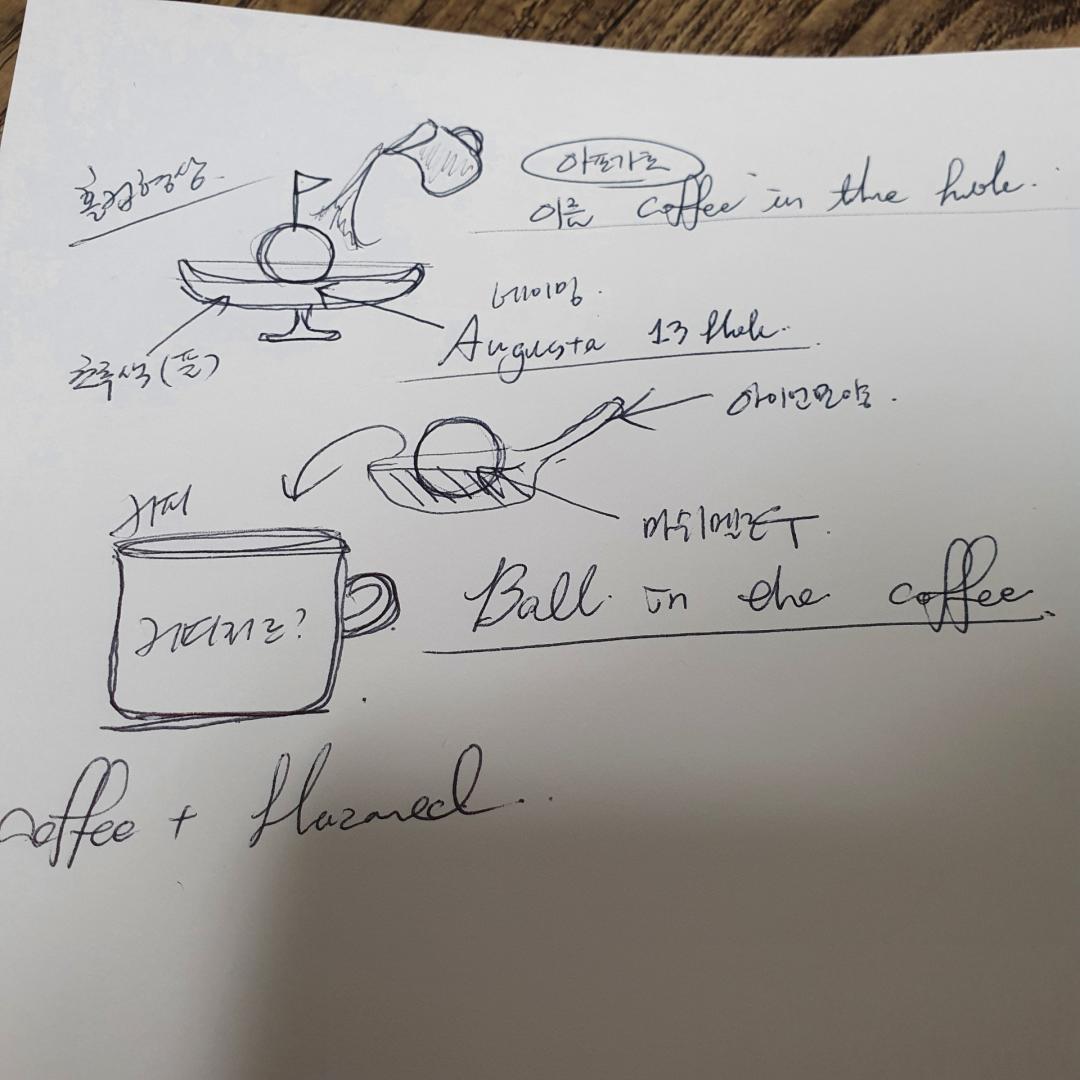 홀컵형상
아포가토
이름 coffee in the hole.
네이밍.
Augusta 13 Hole.
초록색(풀)
아이언모양.
마쉬멜로우.
커피
커피처로?
Ball in the coffee
coffee + Hazared..